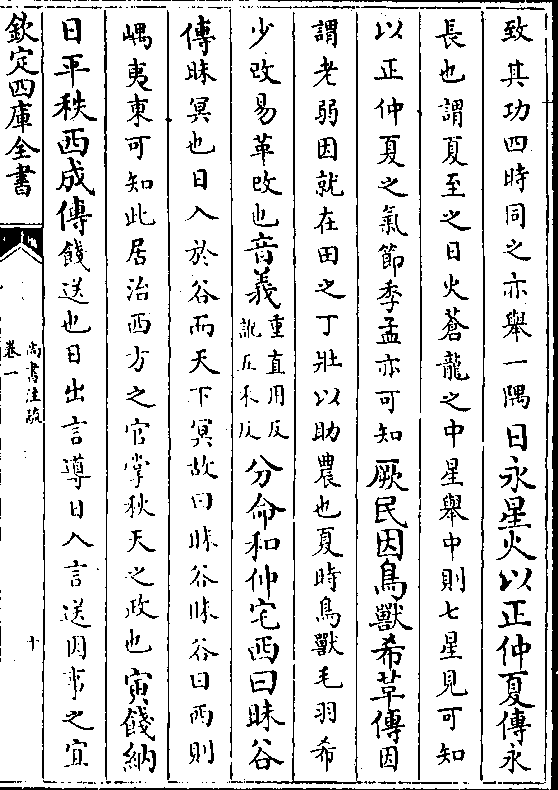 致其功四時同之亦舉一隅日永星火以正仲夏傳永
長也謂夏至之日火蒼龍之中星舉中則七星見可知
以正仲夏之氣節季孟亦可知厥民因鳥獸希革傳因
謂老弱因就在田之丁壯以助農也夏時鳥獸毛羽希
少改易革改也音義重直用反訛五禾反分命和仲宅西曰昧谷
傳昧冥也日入於谷而天下冥故曰昧谷昧谷曰西則
嵎夷東可知此居治西方之官掌秋天之政也寅餞納
日平秩西成傳餞送也日出言導日入言送因事之宜
欽定四庫全書
尚書注疏
卷一
十